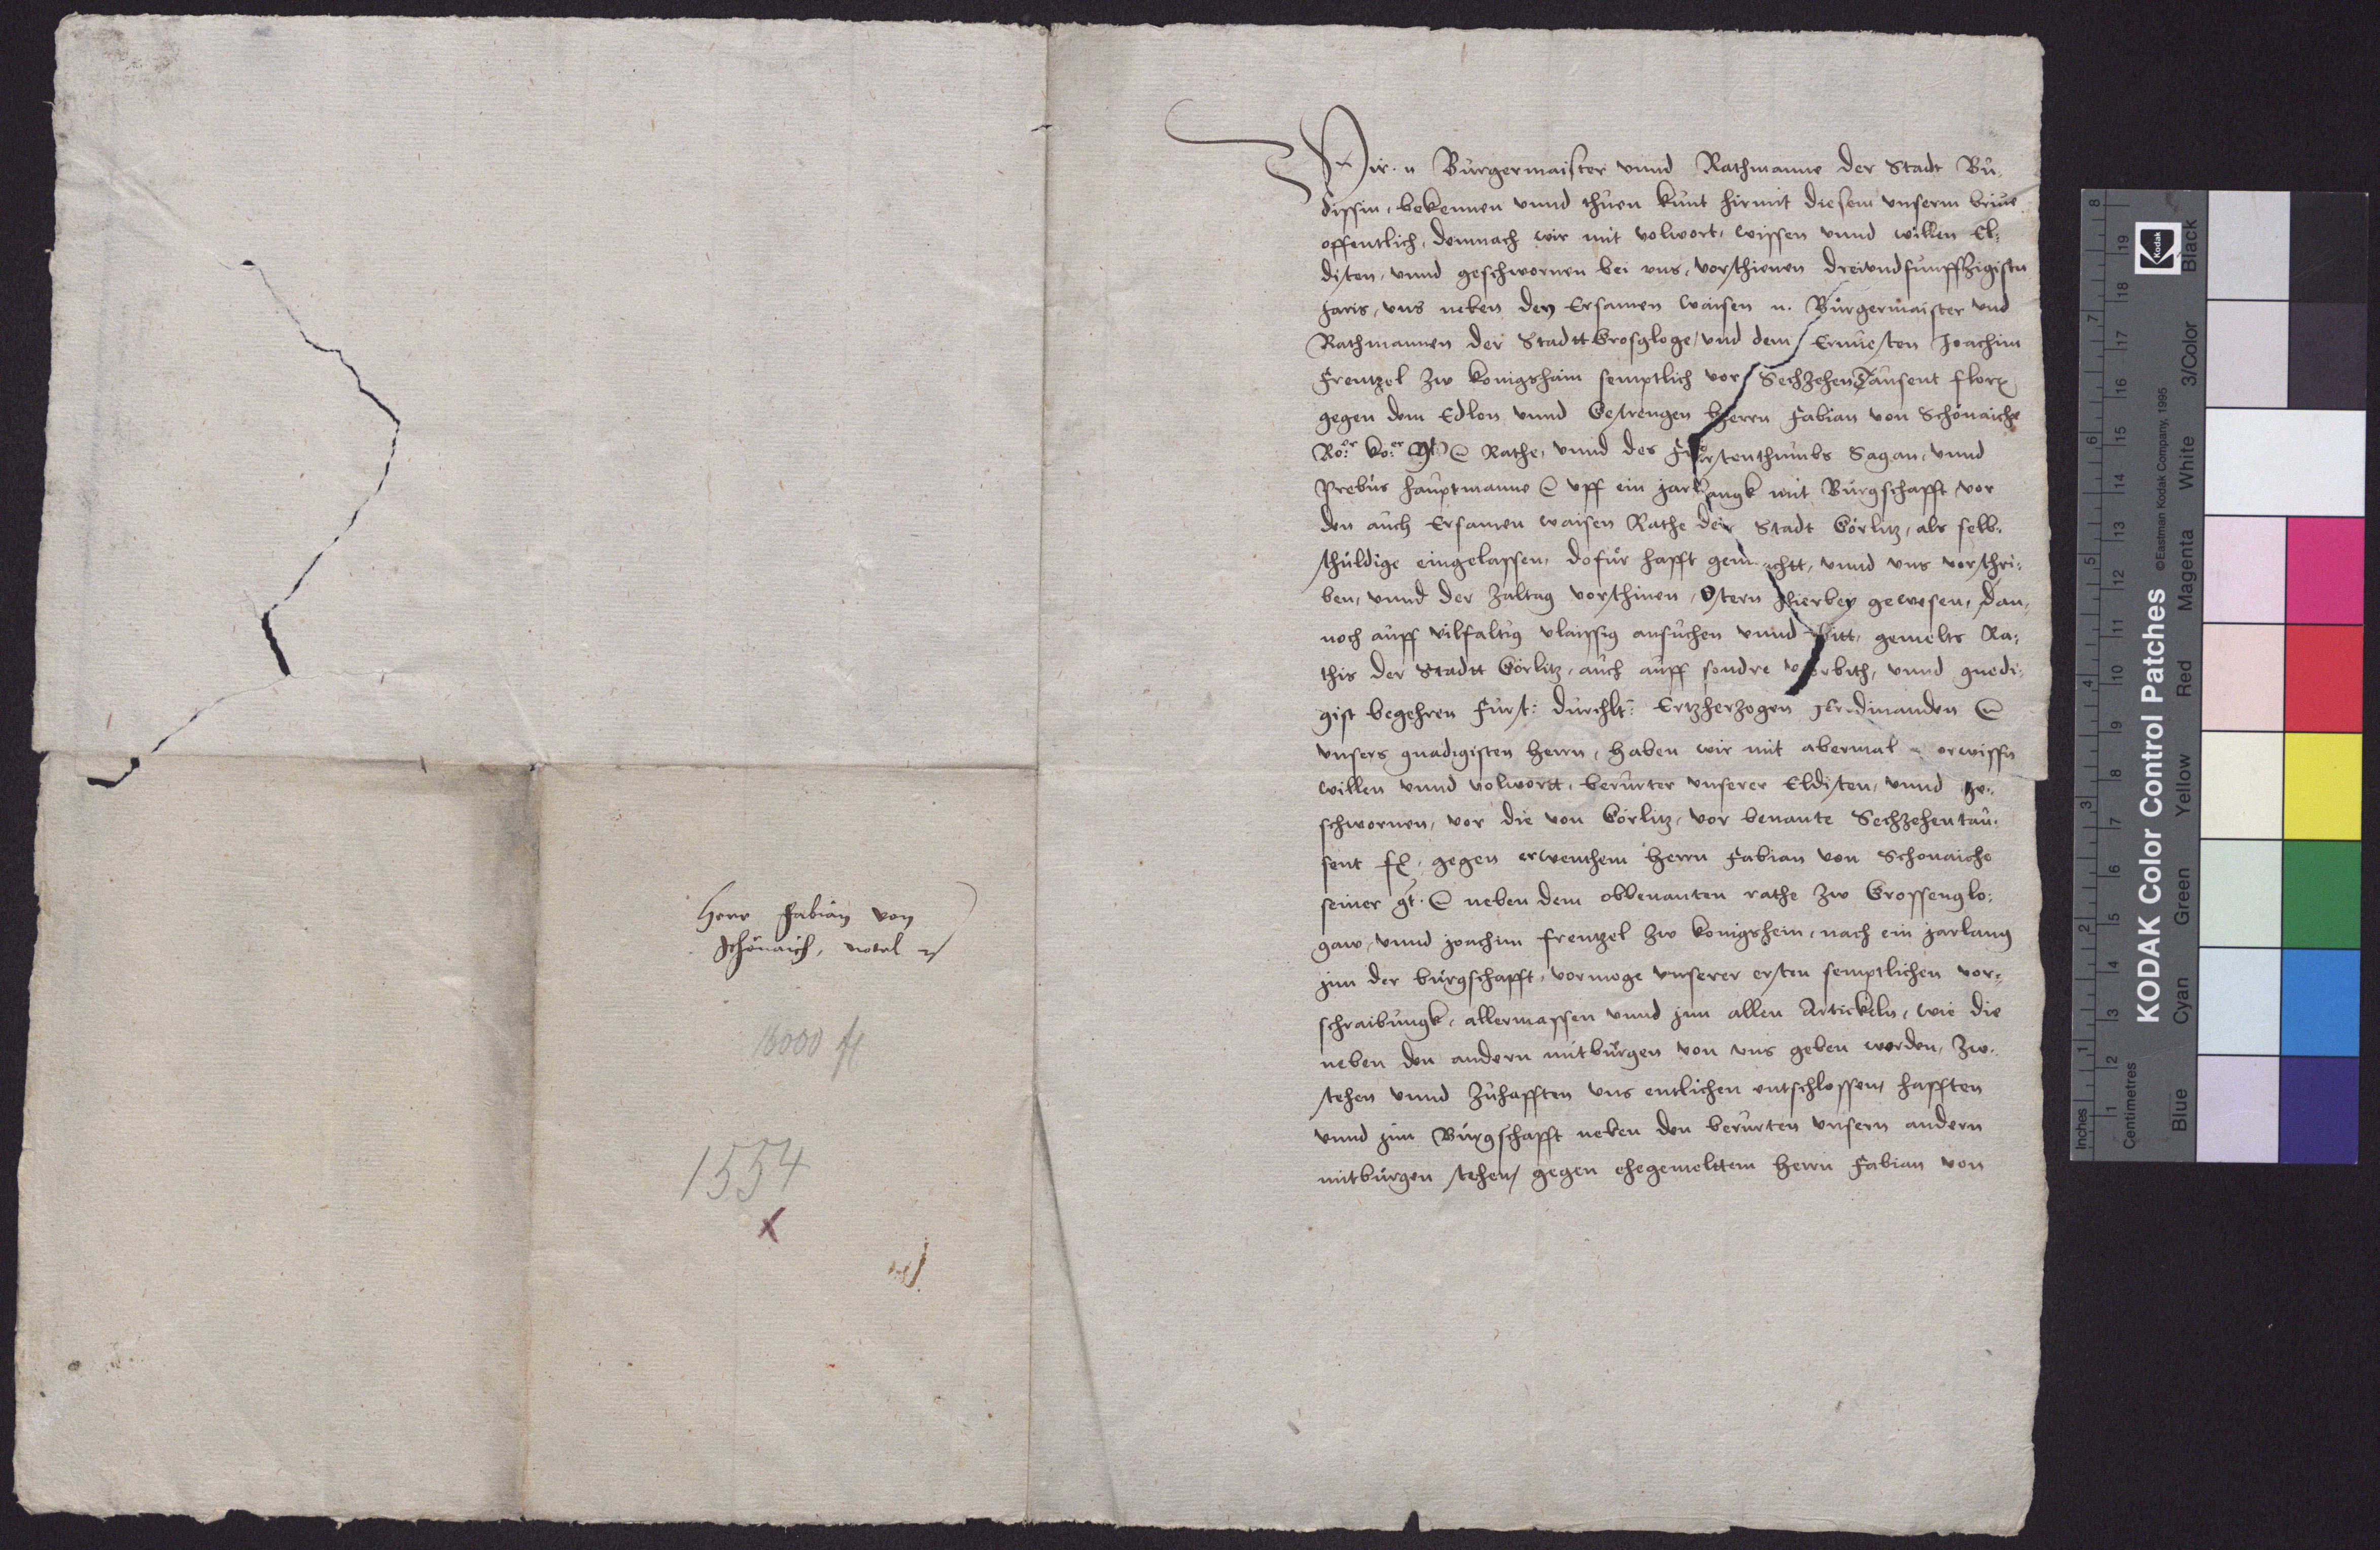 Herr Fabian von
Schönaich,
16000 fl
1554
x
Wir n Burgermaister vnnd Rathmanne der Stadt Bu-
dissin, bekennen vnnd thuen kunt hirmit diesem vnserm briue
offentlich, demnach wir mit volwort, wissen vnnd willen El-
disten, vnnd geschwornen bei vns, vorschienen dreiundfunffzigisten
Jaris, vns neben den Ersamen Waisen n. Burgermaister vnd
Rathmannen der Stadtt Grosgloge, vnd dem Ernuesten Joachim
Frentzel zw Konigshain semptlich vor Sechzehen Tausent flor
gegen dem Edlen vnnd Gestrengen Herrn Fabian von Schönaiche
Rö:er Ko:er Mt Rathe, vnnd des Furstenthumbs Sagan, vnnd
Prebus hauptmanne vff ein jarlangk mit Burgschafft vor
den auch Ersamen waisen Rathe der Stadt Görlitz, als selb-
schuldige eingelassen, dofur hafft gemachtt, vnnd vns vorschri-
ben, vnnd der Zaltag vorschinen Ostern hierbey gewesen, dan-
noch auff vilfaltig vlaissig ansuchen vnnd bitt, gemelts Ra-
this der Stadtt Görlitz, auch auff sondre vorbith, vnnd gnedi-
gist begehren Furst: durchlt: Ertzherzogen Ferdinanden
vnsers gnadigisten herrn, haben wir mit abermal vorwissn
willen vnnd volwortt, berurter vnserer Eldisten, vnnd ge-
schwornen, vor die von Görlitz, vor benante Sechzehentau-
sent fl, gegen erwenthem Herrn Fabian von Schonaiche
seiner gt. neben dem obbenanten rathe zw Grossenglo-
gaw, vnnd Joachim Frentzel zw Konigshein, nach ein jarlang
jnn der burgschafft, vormoge vnserer ersten semptlichen vor-
schraibungk, allermassen vnnd jnn allen Artickeln, wie die
neben den andern mitburgen von vns geben worden, zw-
stehen vnnd zuhafften vns entlichen entschlossen, hafften
vnnd jnn Burgschafft neben den berurten vnsern andern
mitburgen stehen, gegen ehegemelttem Herrn Fabian von
KODAK Color Control Patches
©Eastman Kodak Company, 1995
Kodak
Inches
1 2 3 4 5 6 7 8
Centimetres
1 2 3 4 5 6 7 8 9 10 11 12 13 14 15 16 17 18 19
Blue Cyan Green Yellow Red Magenta White 3/Color Black